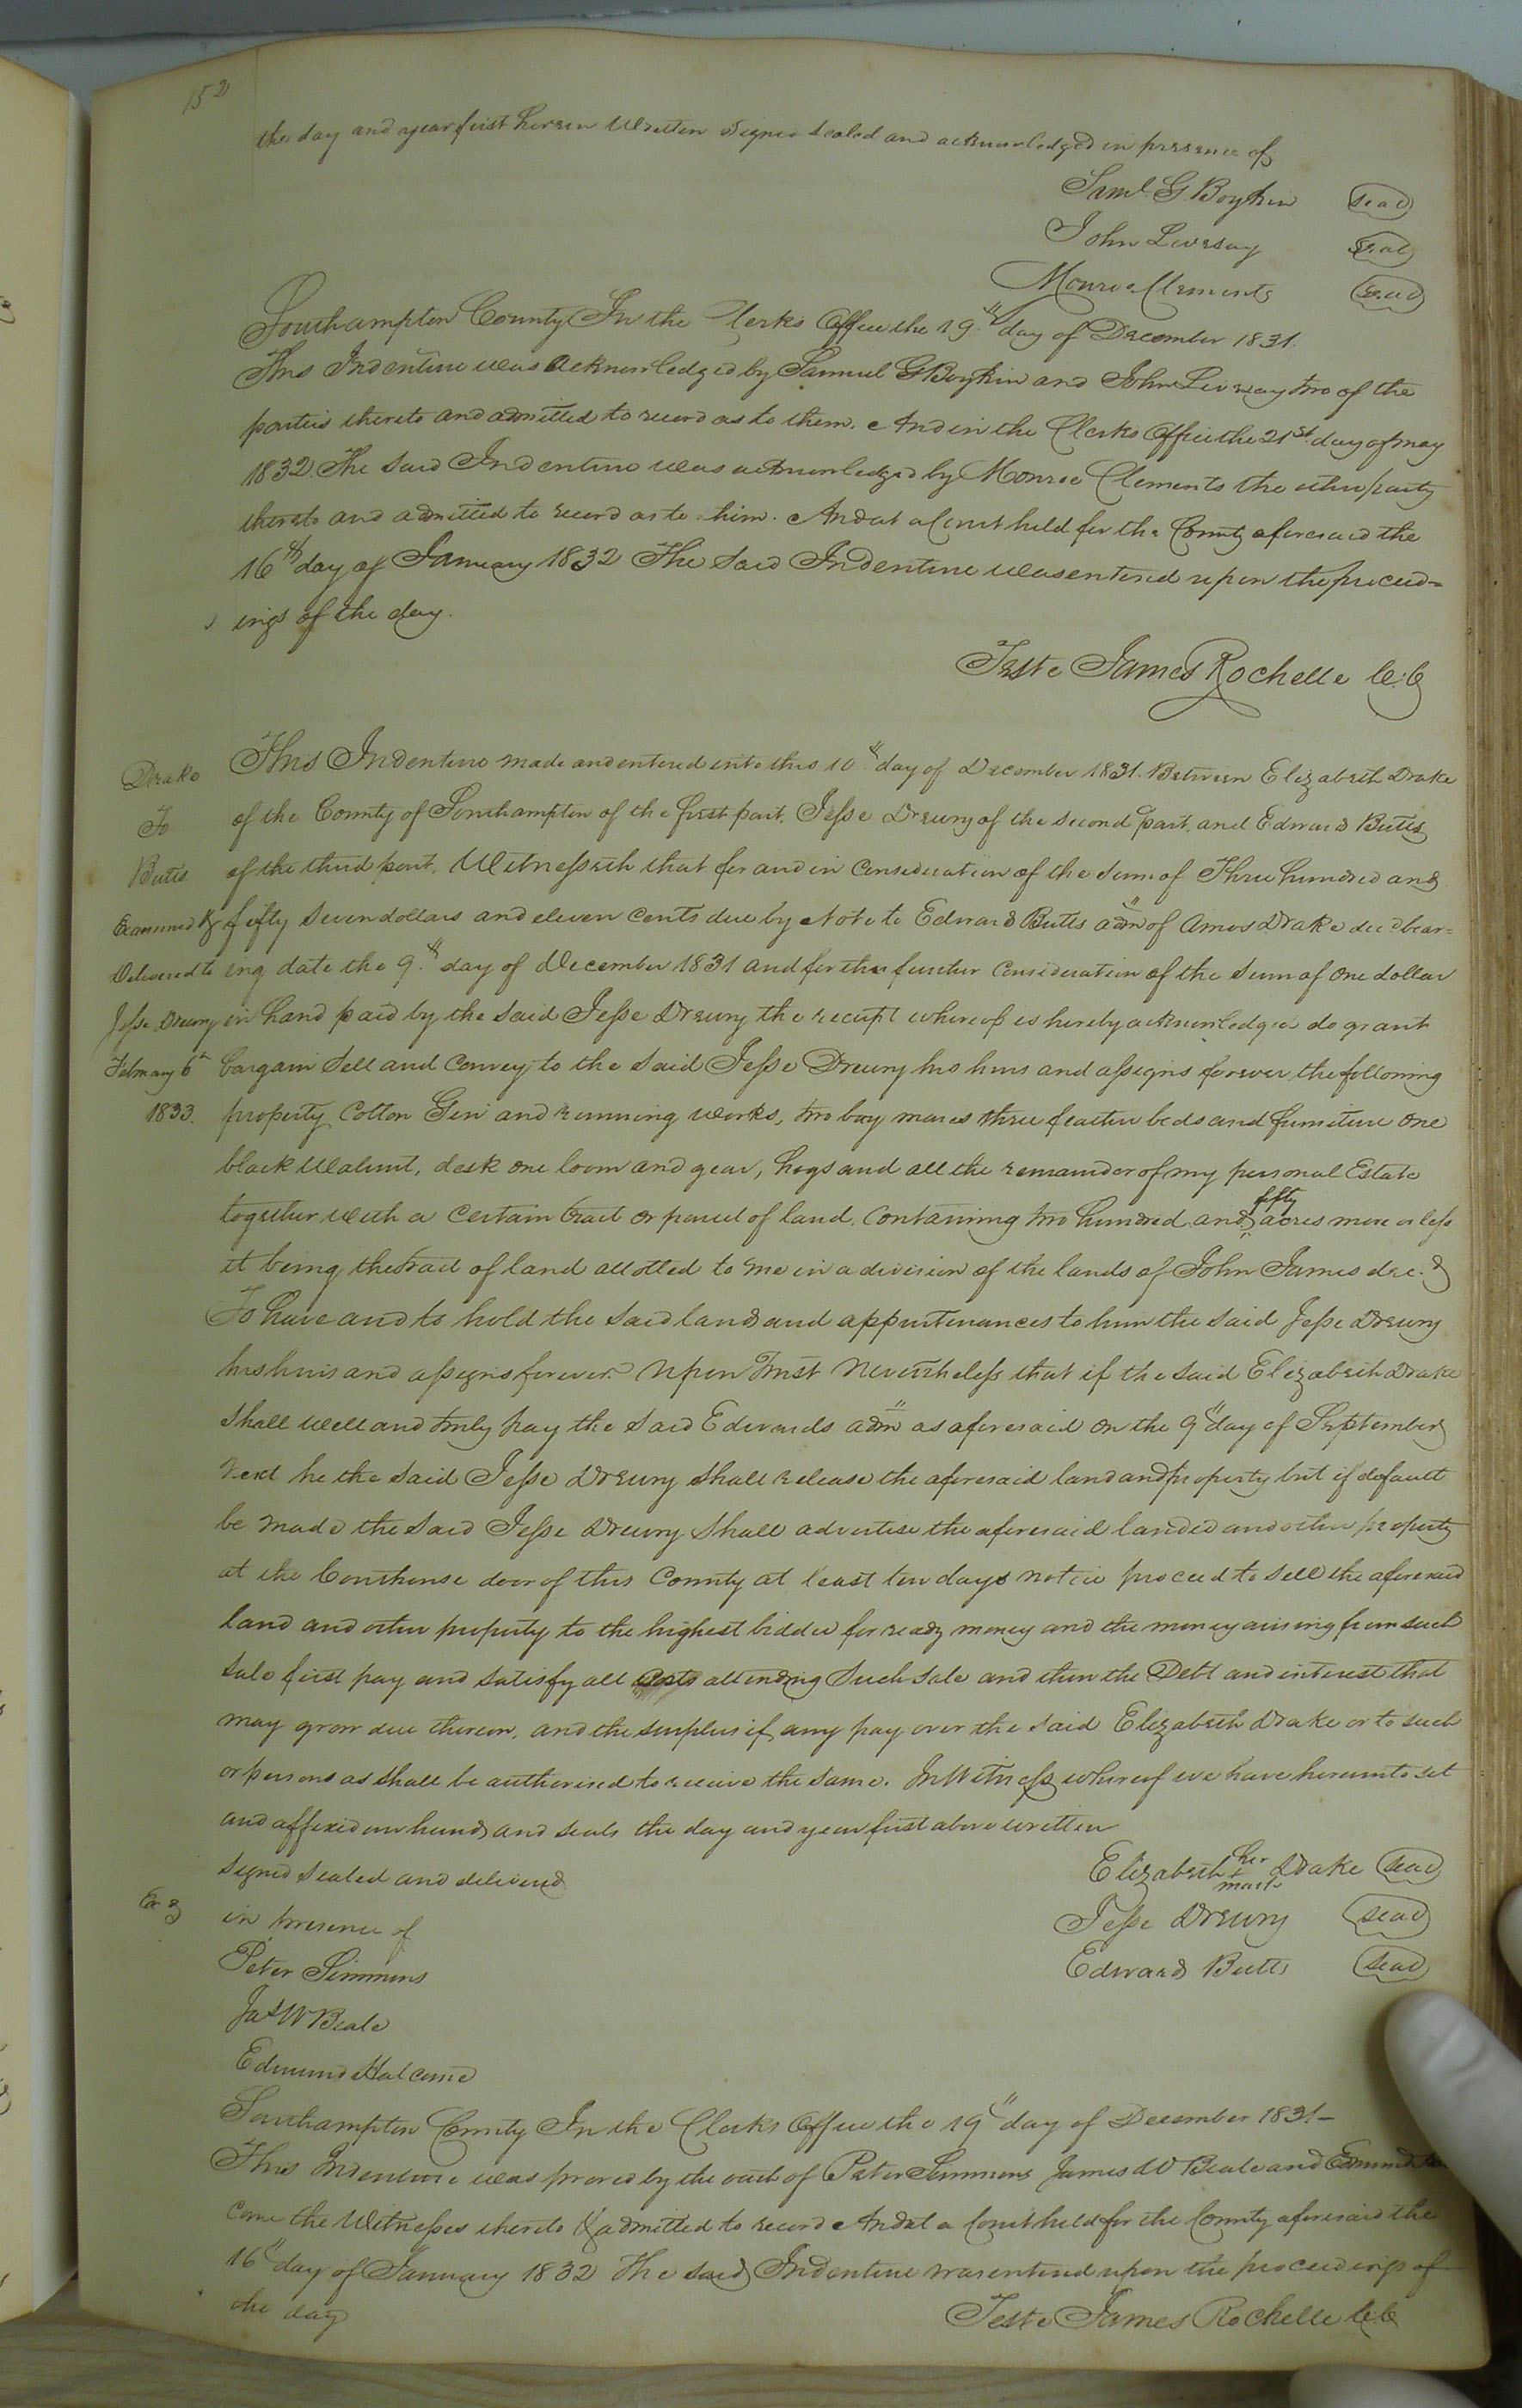 152
the day and year first herein Written Signed Sealed and acknowledged in presence of
Saml. G. Boykin seal
John Livesay seal
Monroe Clements seal
Southampton County In the Clerks Office the 19th day of December 1831.
This Indenture was acknowledged by Samuel G Boykin and John Livesay two of the
parties thereto and admitted to record as to them. And in the Clerks Office the 21st day of may
1832. The said Indenture was acknowledged by Monroe Clements the other party
thereto and admitted to record as to him. And at a Court held for the County aforesaid the
16th day of January 1832 The said Indenture was entered upon the proceed=
ings of the day.
Teste James Rochelle C.C
Drake
To
Butts
Examined &
Delivered to
Jesse Drewry
February 6th
1833.
This Indenture made and entered into this 10th day of December 1831. Between Elizabeth Drake
of the County of Southampton of the first part, Jesse Drewry of the second part, and Edward Butts
of the third part. Witnesseth that for and in Consideration of the sum of Three hundred and
fifty Seven dollars and eleven Cents due by Note to Edward Butts adm of Amos Drake decd bear=
ing date the 9th day of December 1831 and for the further Consideration of the sum of one dollar
in hand paid by the said Jesse Drewry the receipt whereof is hereby acknowledged do grant
bargain Sell and Convey to the said Jesse Drewry his heirs and assigns forever, the following
property, Cotton Gin and running works, two bay mares three feather beds and furniture One
black Walnut, desk one loom and gear, hogs and all the remainder of my personal Estate
together with a Certain tract or parcel of land, Containing two hundred and fifty acres more or less
it being the tract of land allotted to me in a division of the lands of John James dec.d
To have and to hold the said land and appurtenances to him the said Jesse Drewry
his heirs and assigns forever. Upon Trust Nevertheless that if the said Elizabeth Drake
Shall well and truly pay the said Edwards adm as aforesaid on the 9th day of September
Next he the said Jesse Drewry Shall release the aforesaid land and property but if default
be made the said Jesse Drewry Shall advertise the aforesaid landed and other property
at the Courthouse door of this County at least ten days notice proceed to sell the aforesaid
land and other property to the highest bidder for ready money and the money arising from such
Sale first pay and satisfy all costs attending Such Sale and then the Debt and interest that
may grow due thereon, and the surplus if any pay over the said Elizabeth Drake or to such
or persons as shall be authorised to receive the same. In Witness whereof we have hereunto set
and affixed our hands and seals the day and year first above written
Signed Sealed and delivered
Ex d
in presence of
Elizabeth her + mark Drake seal
Jesse Drewry seal
Edward Butts seal
Peter Simmons
Jas W Beale
Edmund Halcome
Southampton County In the Clerks Office the 19th day of December 1831-
This Indenture was proved by the oath of Peter Simmons James W Beale and Edmund
come the Witnesses thereto & admitted to record And at a Court held for the County aforesaid the
16th day of January 1832 The said Indenture was entered upon the proceedings of
the day
Teste James Rochelle C.C